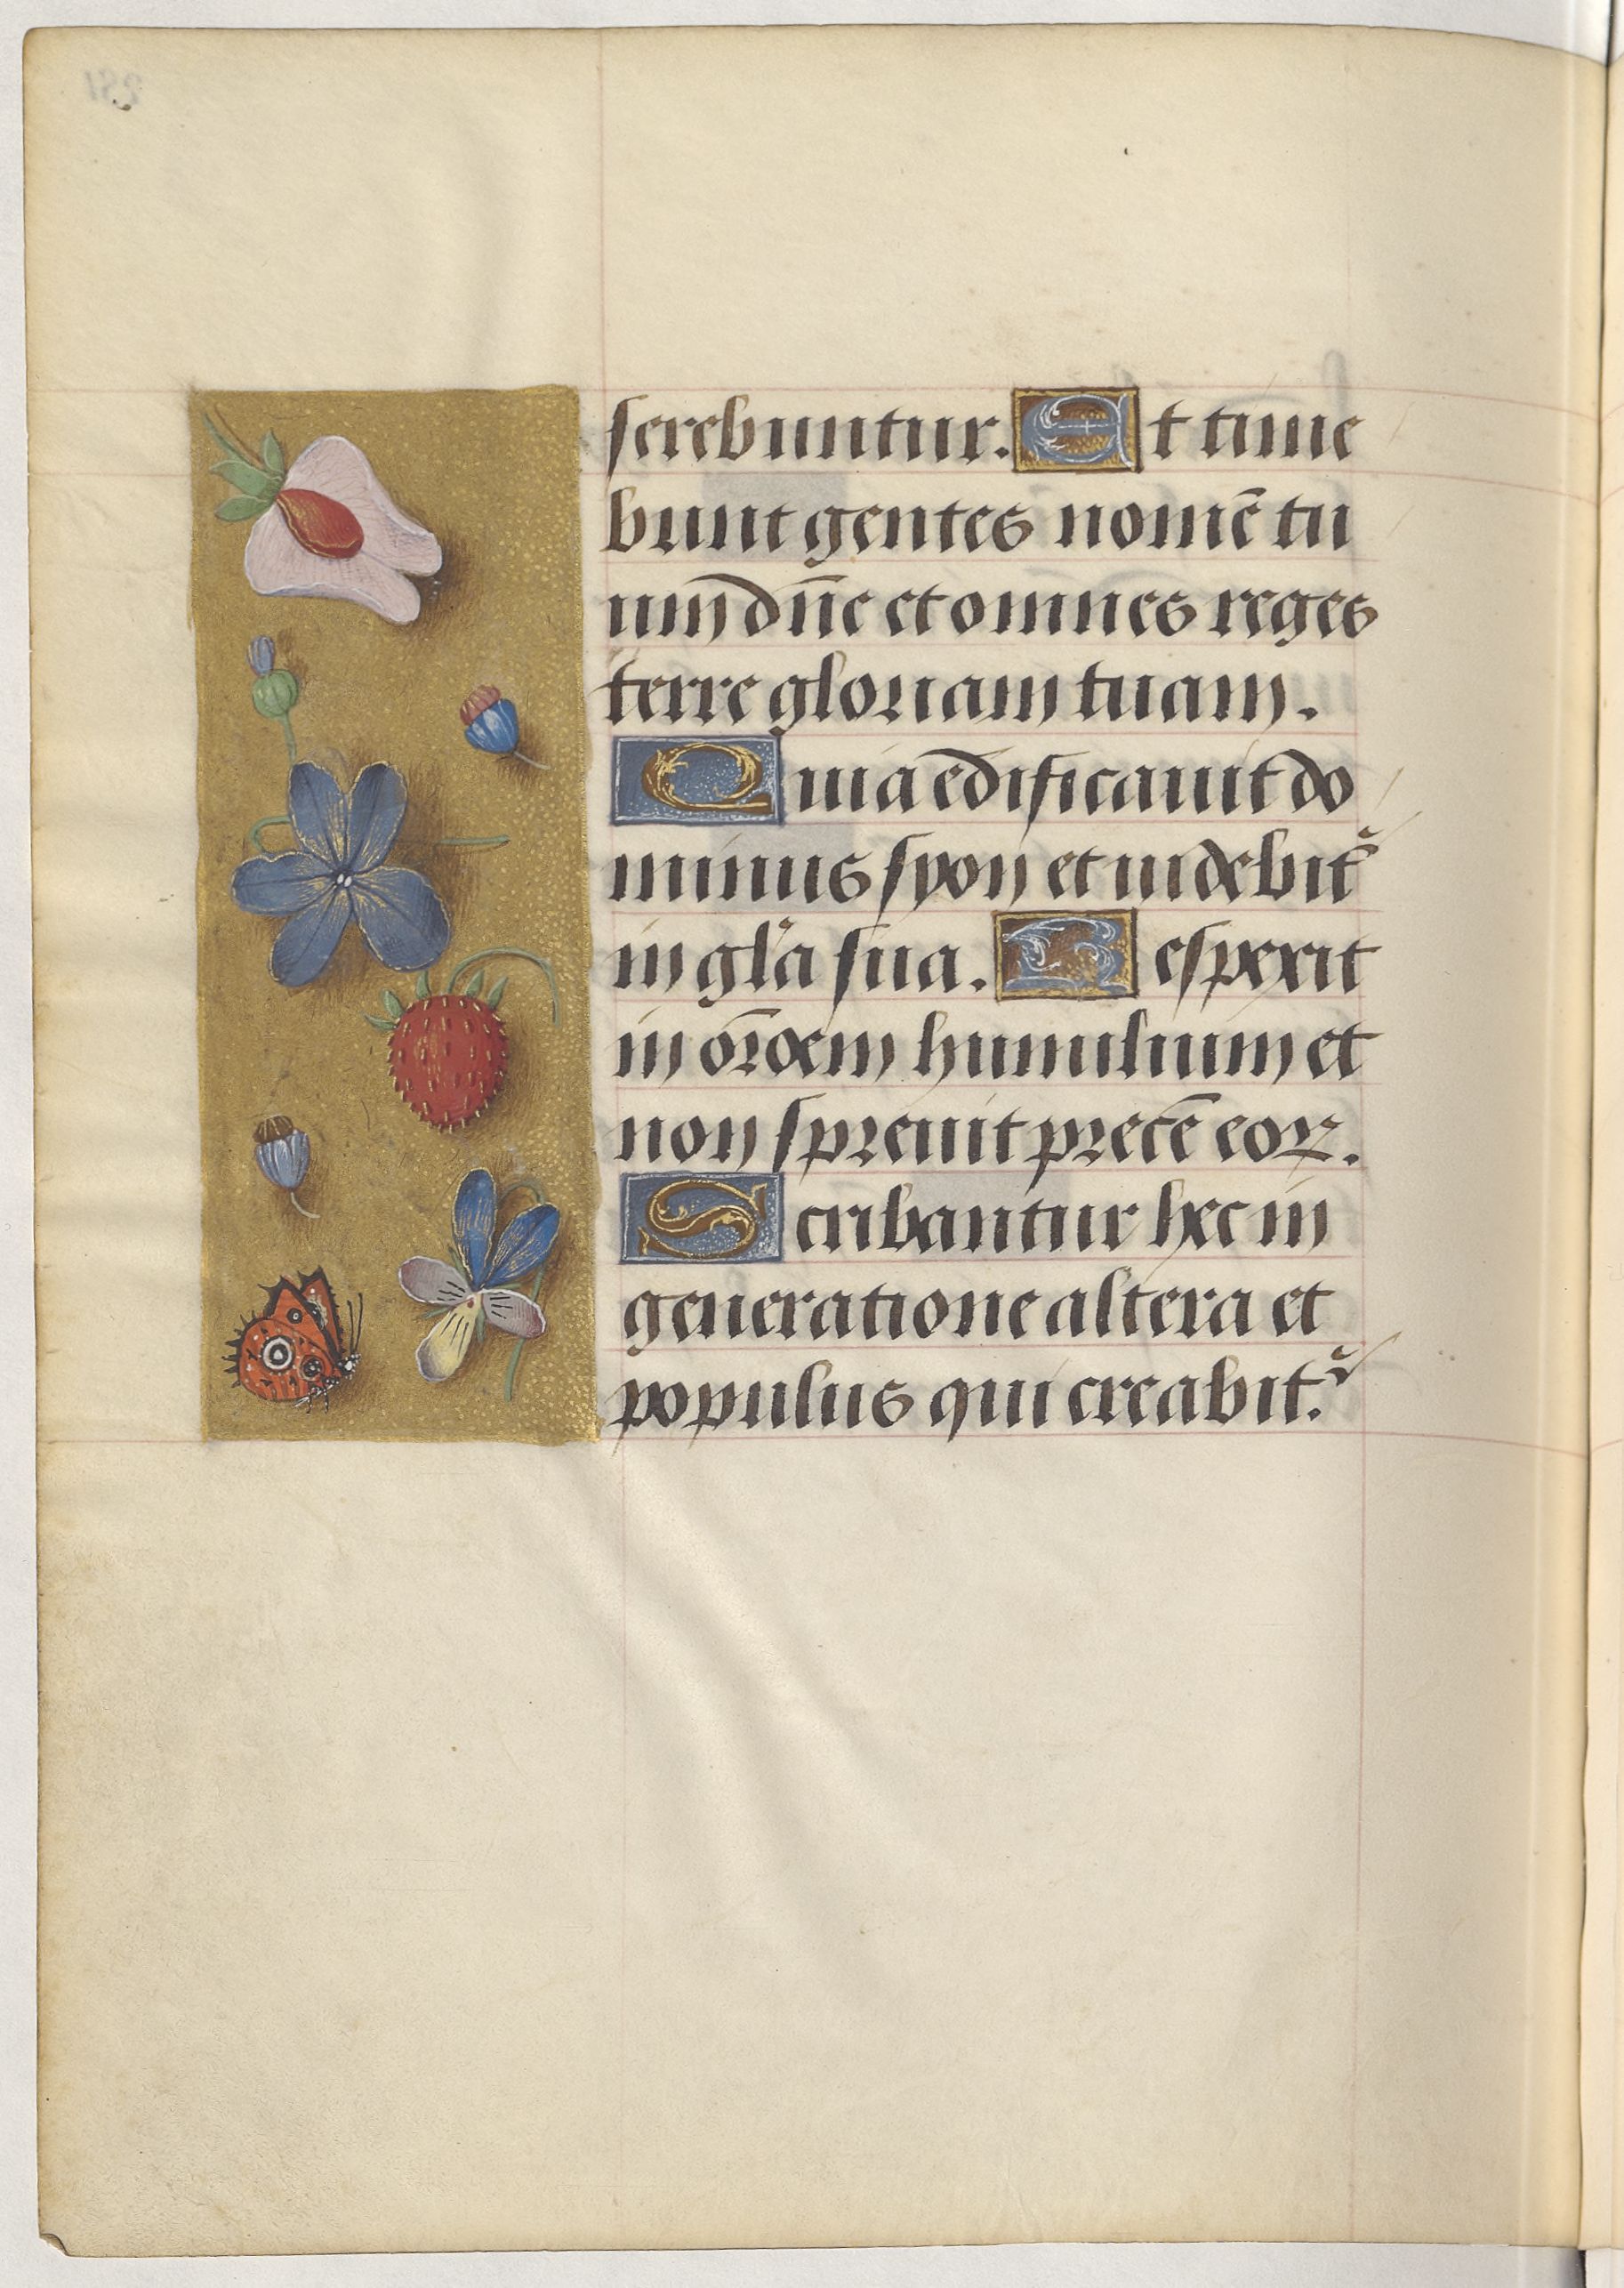 serebuntur. Et time
bunt gentes nomē tu
um dn̄e et omnes reges
terre gloriam tuam.
Quia edificauit do
minus syon et uidebit᷑
in gl̄a sua. Respexit
in or̄dem humilium et
non spreuit precē eoꝝ.
Scribantur hec in
generatione altera et
populus qui creabit᷑.